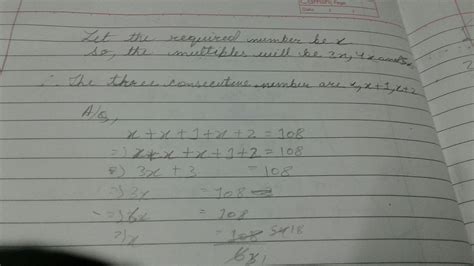 Let the required number be x
so, the multiples will be 2x, 4x and
∴ The three consecutive number are x, x+1, x+2
A/q,
x + x + 1 + x + 2 = 108
=) x + x + x + 1 + 2 = 108
=) 3x + 3 = 108
=) 3x = 108
=) 6x = 108
=) x = 108 54 18